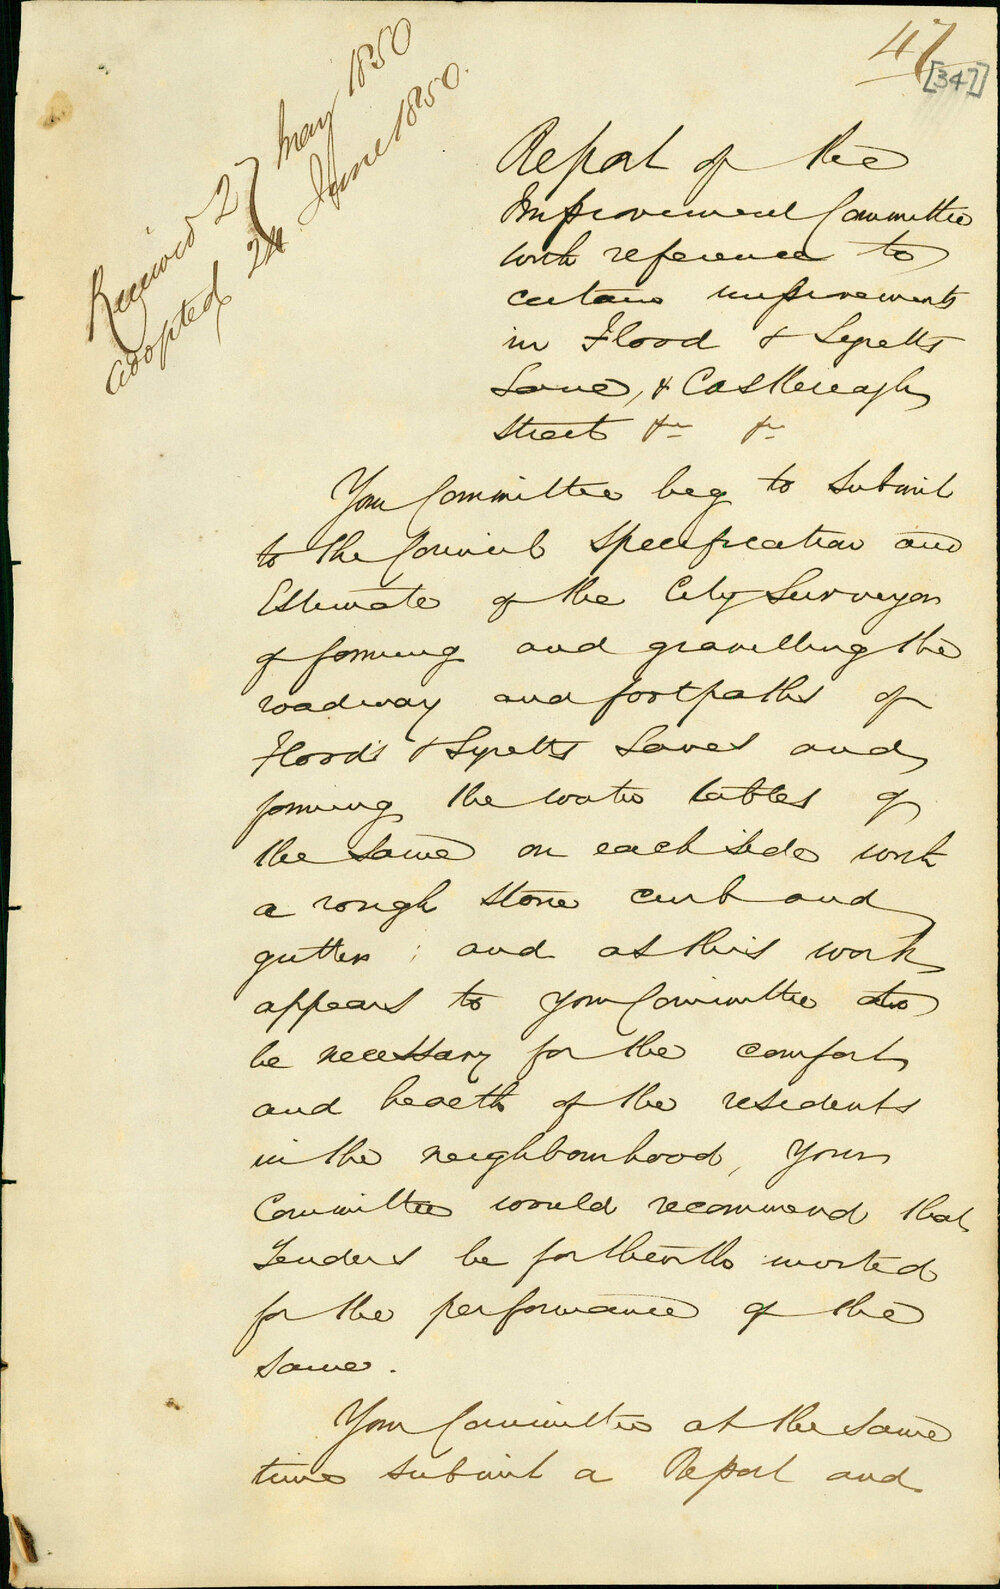 47
[347]
Received 27 May 1850
adopted 24 June 1850.
Report of the
Improvement Committee
with reference to
certain improvements
in Flood & Lyretts
Lane, & Castlereagh
Street &c &c
Your Committee beg to submit
to the Council Specification and
Estimate of the City Surveyor
of forming and gravelling the
roadway and footpaths of
Flood's & Lyretts Lanes and
forming the water tables of
the same on each side with
a rough stone curb and
gutter; and as this work
appears to your Committee to
be necessary for the comfort
and health of the residents
in the neighbourhood, Your
Committee would recommend that
Tenders be forthwith invited
for the performance of the
same.
Your Committee at the same
time submit a Report and